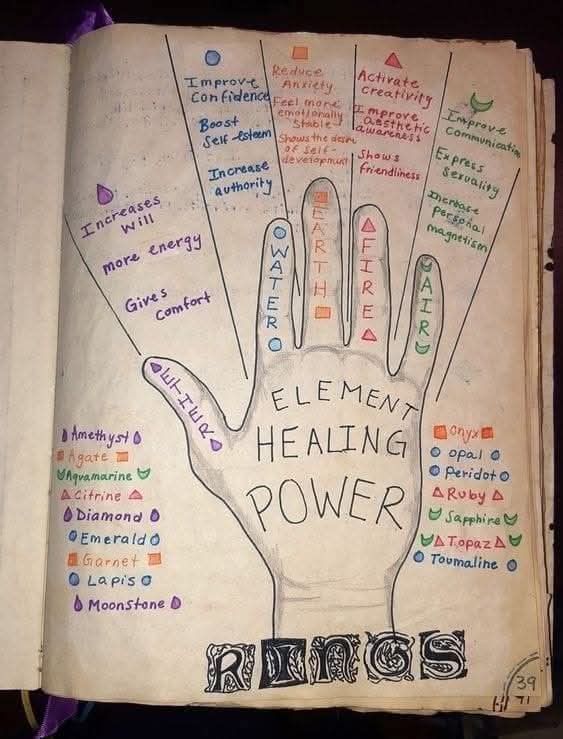 Increases
will
more energy
Gives
comfort
Improve
Confidence
Boost
Self-esteem
Increase
authority
Reduce
Anxiety
Feel more
emotionally
Stable
Shows the desire
of self-
development
Activate
creativity
Improve
aesthetic
awareness
Shows
friendliness
Improve
Communication
Express
sexuality
Increase
personal
magnetism
ETHER
WATER
EARTH
FIRE
AIR
ELEMENT
HEALING
POWER
Amethyst
Agate
Aquamarine
Citrine
Diamond
Emerald
Garnet
Lapis
Moonstone
Onyx
Opal
Peridot
Ruby
Sapphire
Topaz
Toumaline
RINGS
39